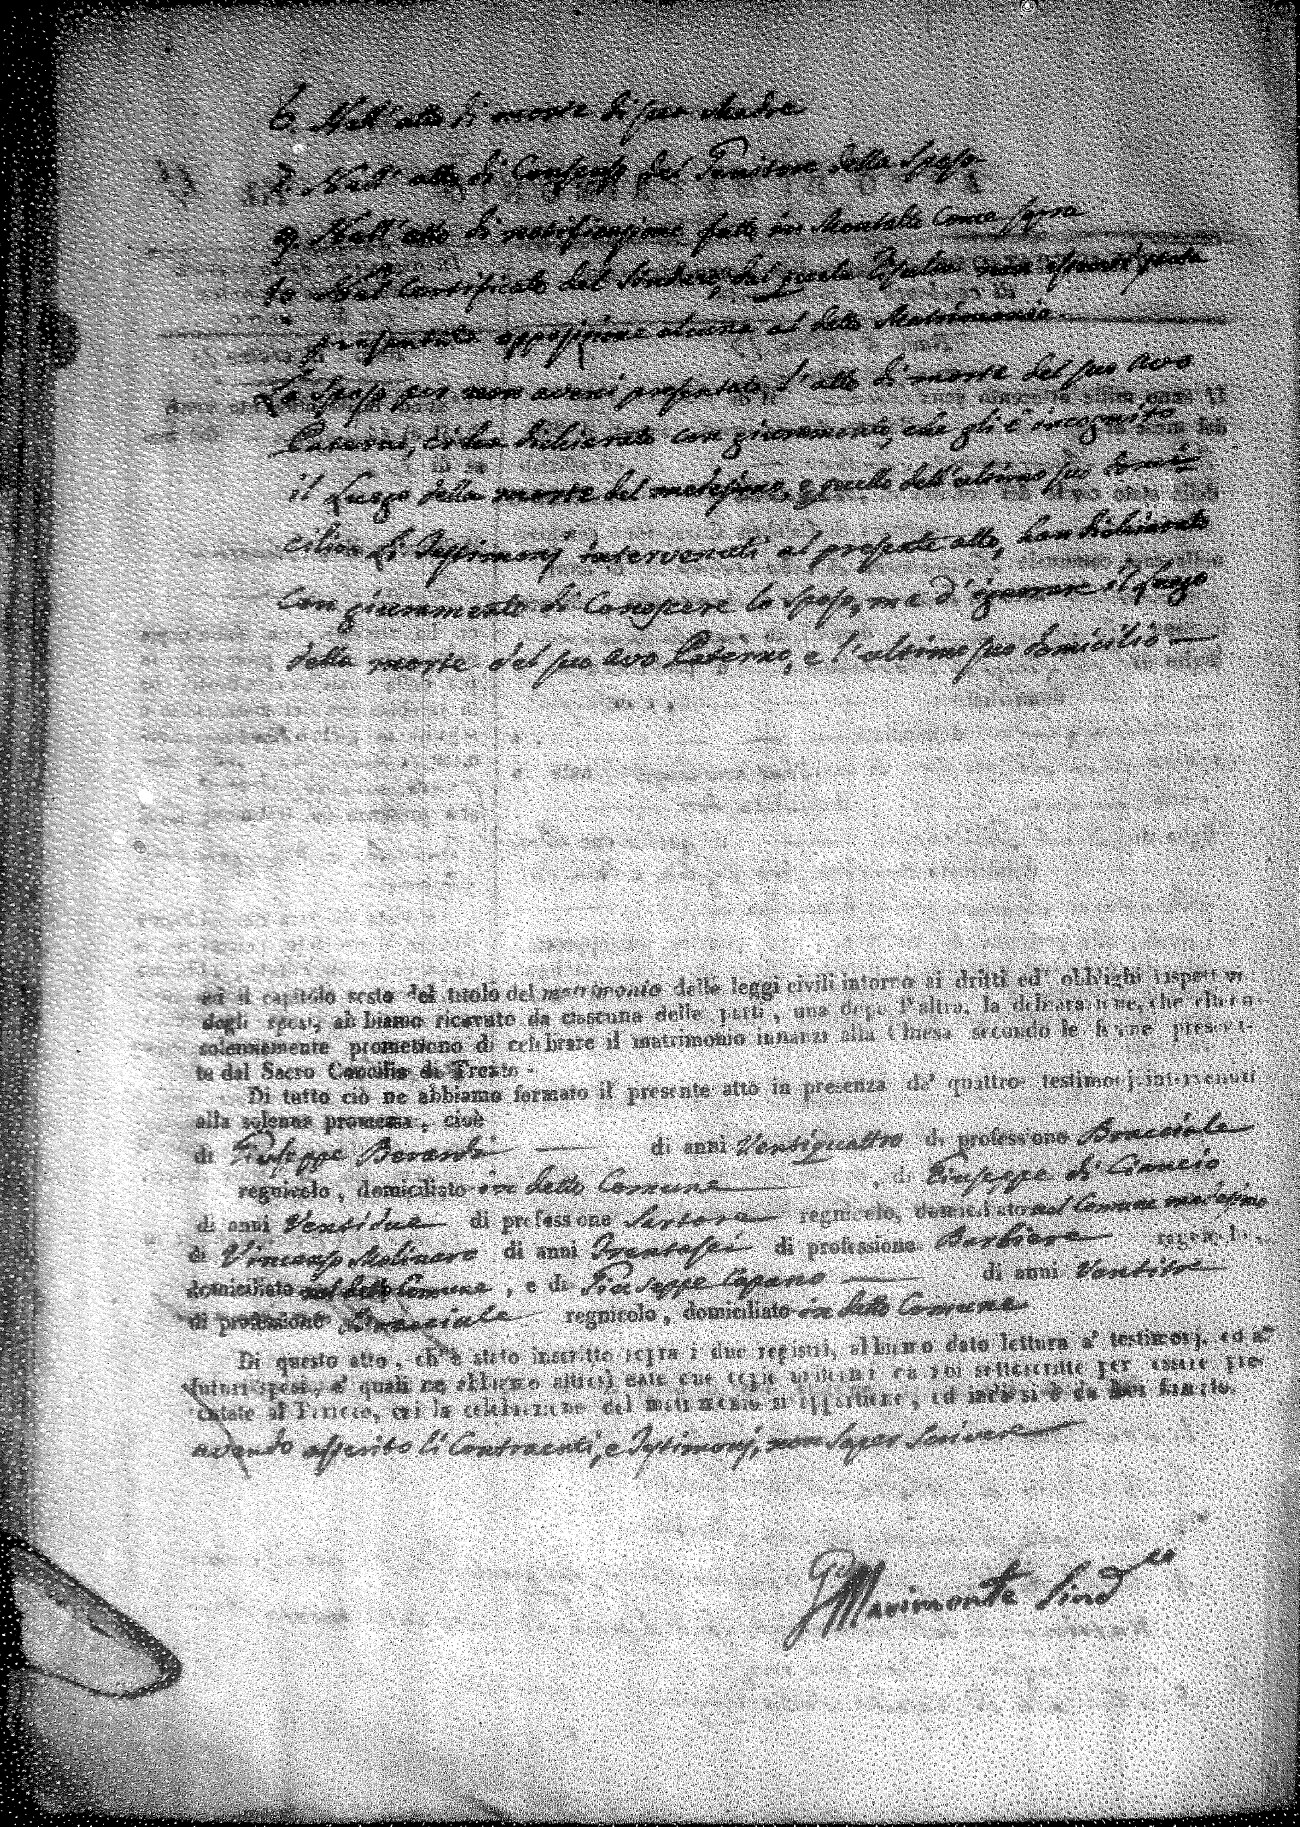 6. Nell'atto di morte di sua Madre
Nell' atto di Consenso del Genitore della Sposa
9. Nell'atto di notificazione fatta in Montalto come sopra
10 Nel Certificato del Sindaco, del quale risulta non essersi stata
presentata opposizione alcuna al detto Matrimonio.
Lo Sposo per non aversi presentato l'atto di morte del suo Avo
Paterno, ci ha dichiarato con giuramento, che gli è incognito
il Luogo della morte del medesimo, e quello dell'ultimo suo domi-
cilio. Li Testimonj intervenuti al presente atto, han dichiarato
con giuramento di Conoscere lo Sposo, ma d'ignorare il luogo
della morte del suo Avo Paterno, e l'ultimo suo domicilio —
ed il capitolo sesto del titolo del matrimonio delle leggi civili intorno ai dritti ed' obblighi rispettivi
degli sposi, abbiamo ricevuto da ciascuna delle parti, una dopo l'altra, la dichiarazione, che elleno
solennemente promettono di celebrare il matrimonio innanzi alla Chiesa secondo le forme prescrit-
te dal Sacro Concilio di Trento.
Di tutto ciò ne abbiamo formato il presente atto in presenza de' quattro testimonj intervenuti
alla solenne promessa, cioè
di Giuseppe Berardi — di anni Ventiquattro di professione Bracciale
regnicolo, domiciliato in detto Comune — , di Giuseppe di Ciancio
di anni Ventidue di professione Sartore regnicolo, domiciliato nel Comune medesimo
di Vincenzo Molinaro di anni Trentasei di professione Barbiere regnicolo,
domiciliato nel detto Comune , e di Giuseppe Capano — di anni Ventisei
di professione Bracciale regnicolo, domiciliato in detto Comune
Di questo atto, ch'è stato inscritto sopra i due registri, abbiamo dato lettura a' testimonj, ed a'
futuri sposi, a' quali ne abbiamo altresì date due copie uniformi da noi sottoscritte per essere pre-
sentate al Parroco, cui la celebrazione del matrimonio si appartiene, ed indi si è da Noi firmato,
avendo asserito li Contraenti, e Testimonj, non saper Scrivere
Marimonte Sind.co